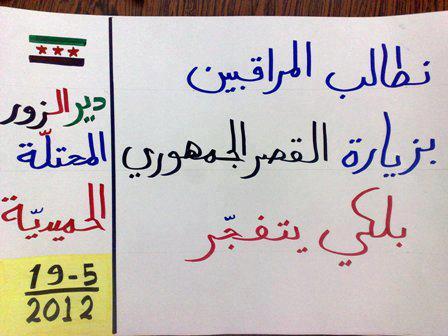 نطالب المراقبين
بزيارة القصر الجمهوري
بلكي يتفجّر
دير الزور
المحتلّة
الحميديّة
19-5
2012